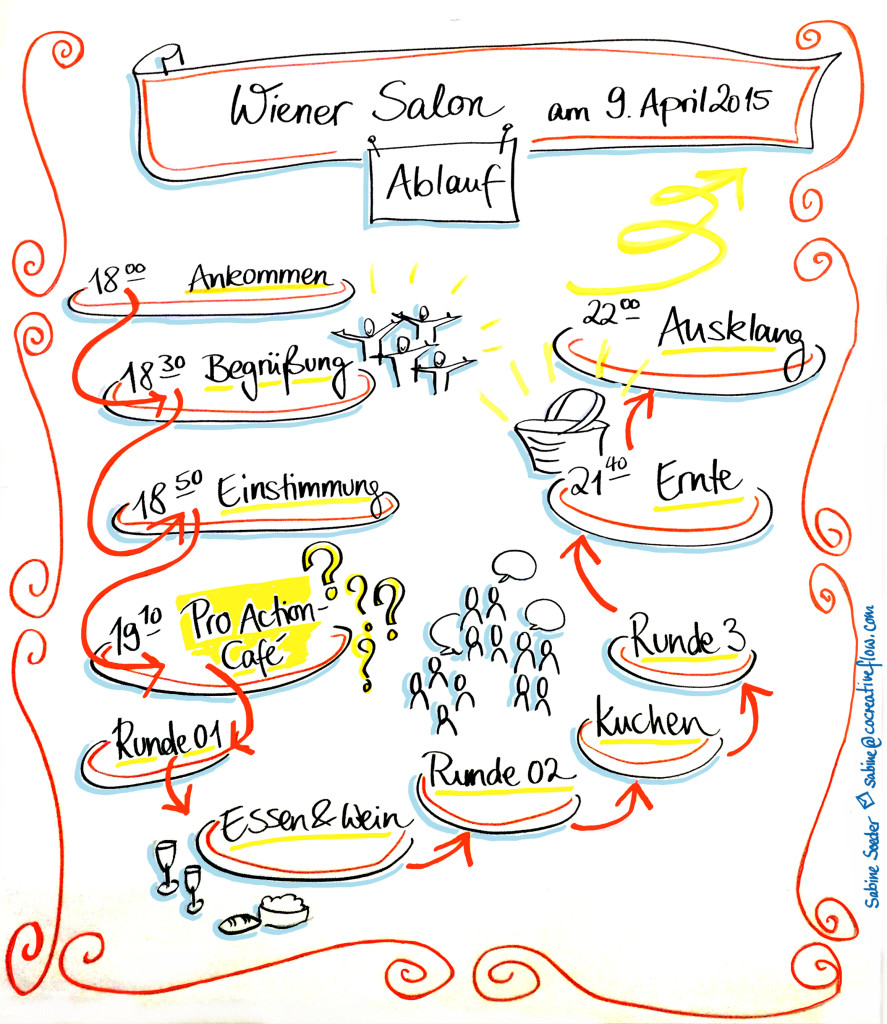 Wiener Salon am 9. April 2015
Ablauf
18 00 Ankommen
18 30 Begrüßung
18 50 Einstimmung
19 10 Pro Action-
Café
? ? ? ?
Runde 01
Essen & Wein
Runde 02
Kuchen
Runde 3
21 40 Ernte
22 00 Ausklang
Sabine Soeder sabine@cocreativeflow.com